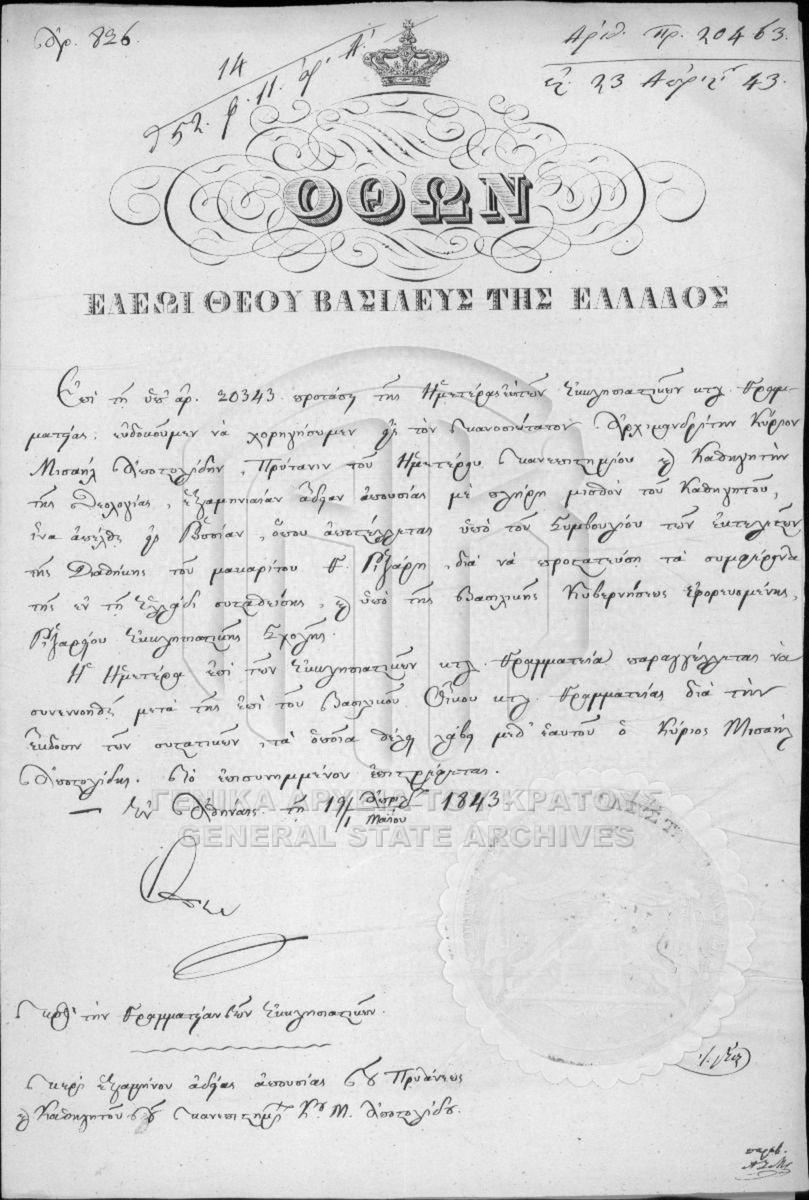 Ἀρ. 826.
Ἀριθ. πρ. 20463.
14
52. φ. 11. ἀρ. Α΄
23 Ἀπριλ 43.
ΟΘΩΝ
ΕΛΕΩΙ ΘΕΟΥ ΒΑΣΙΛΕΥΣ ΤΗΣ ΕΛΛΑΔΟΣ
Ἐπὶ τῇ ὑπ' ἀρ. 20343 προτάσει τῆς Ἡμετέρας ἐπὶ τῶν Ἐκκλησιαστικῶν κτλ. Γραμ-
ματείας, εὐδοκοῦμεν νὰ χορηγήσωμεν εἰς τὸν Πανοσιώτατον Ἀρχιμανδρίτην Κύριον
Μισαὴλ Ἀποστολίδην, Πρύτανιν τοῦ Ἡμετέρου Πανεπιστημίου καὶ Καθηγητὴν
τῆς Θεολογίας, ἑξαμηνιαίαν ἄδειαν ἀπουσίας μὲ πλήρη μισθὸν τοῦ Καθηγητοῦ,
ἵνα ἀπέλθῃ εἰς Ῥωσσίαν, ὅπου ἀποστέλλεται ὑπὸ τοῦ Συμβουλίου τῶν ἐκτελεστῶν
τῆς Διαθήκης τοῦ μακαρίτου Γ. Ῥιζάρη, διὰ νὰ προστατεύσῃ τὰ συμφέροντα
τῆς ἐν τῇ Ἑλλάδι συσταθείσης, καὶ ὑπὸ τῆς Βασιλικῆς Κυβερνήσεως ἐφορευομένης,
Ῥιζαρείου Ἐκκλησιαστικῆς Σχολῆς.
Ἡ Ἡμετέρα ἐπὶ τῶν Ἐκκλησιαστικῶν κτλ. Γραμματεία παραγγέλλεται νὰ
συνεννοηθῇ μετὰ τῆς ἐπὶ τοῦ Βασιλικοῦ Οἴκου κτλ. Γραμματείας διὰ τὴν
ἔκδοσιν τῶν συστατικῶν, τὰ ὁποῖα θέλει λάβει μεθ' ἑαυτοῦ ὁ Κύριος Μισαὴλ
Ἀποστολίδης. Τὸ ἐπισυνημμένον ἐπιστρέφεται.
Ἐν Ἀθήναις τῇ 19/1 Ἀπριλ/Μαΐου 1843
ΓΕΝΙΚΑ ΑΡΧΕΙΑ ΤΟΥ ΚΡΑΤΟΥΣ
GENERAL STATE ARCHIVES
Ὄθων
Πρὸς τὴν Γραμματείαν τῶν Ἐκκλησιαστικῶν.
Περὶ ἑξαμήνου ἀδείας ἀπουσίας τοῦ Πρυτάνεως
καὶ Καθηγητοῦ τοῦ Πανεπιστημ. Κου Μ. Ἀποστολίδου.